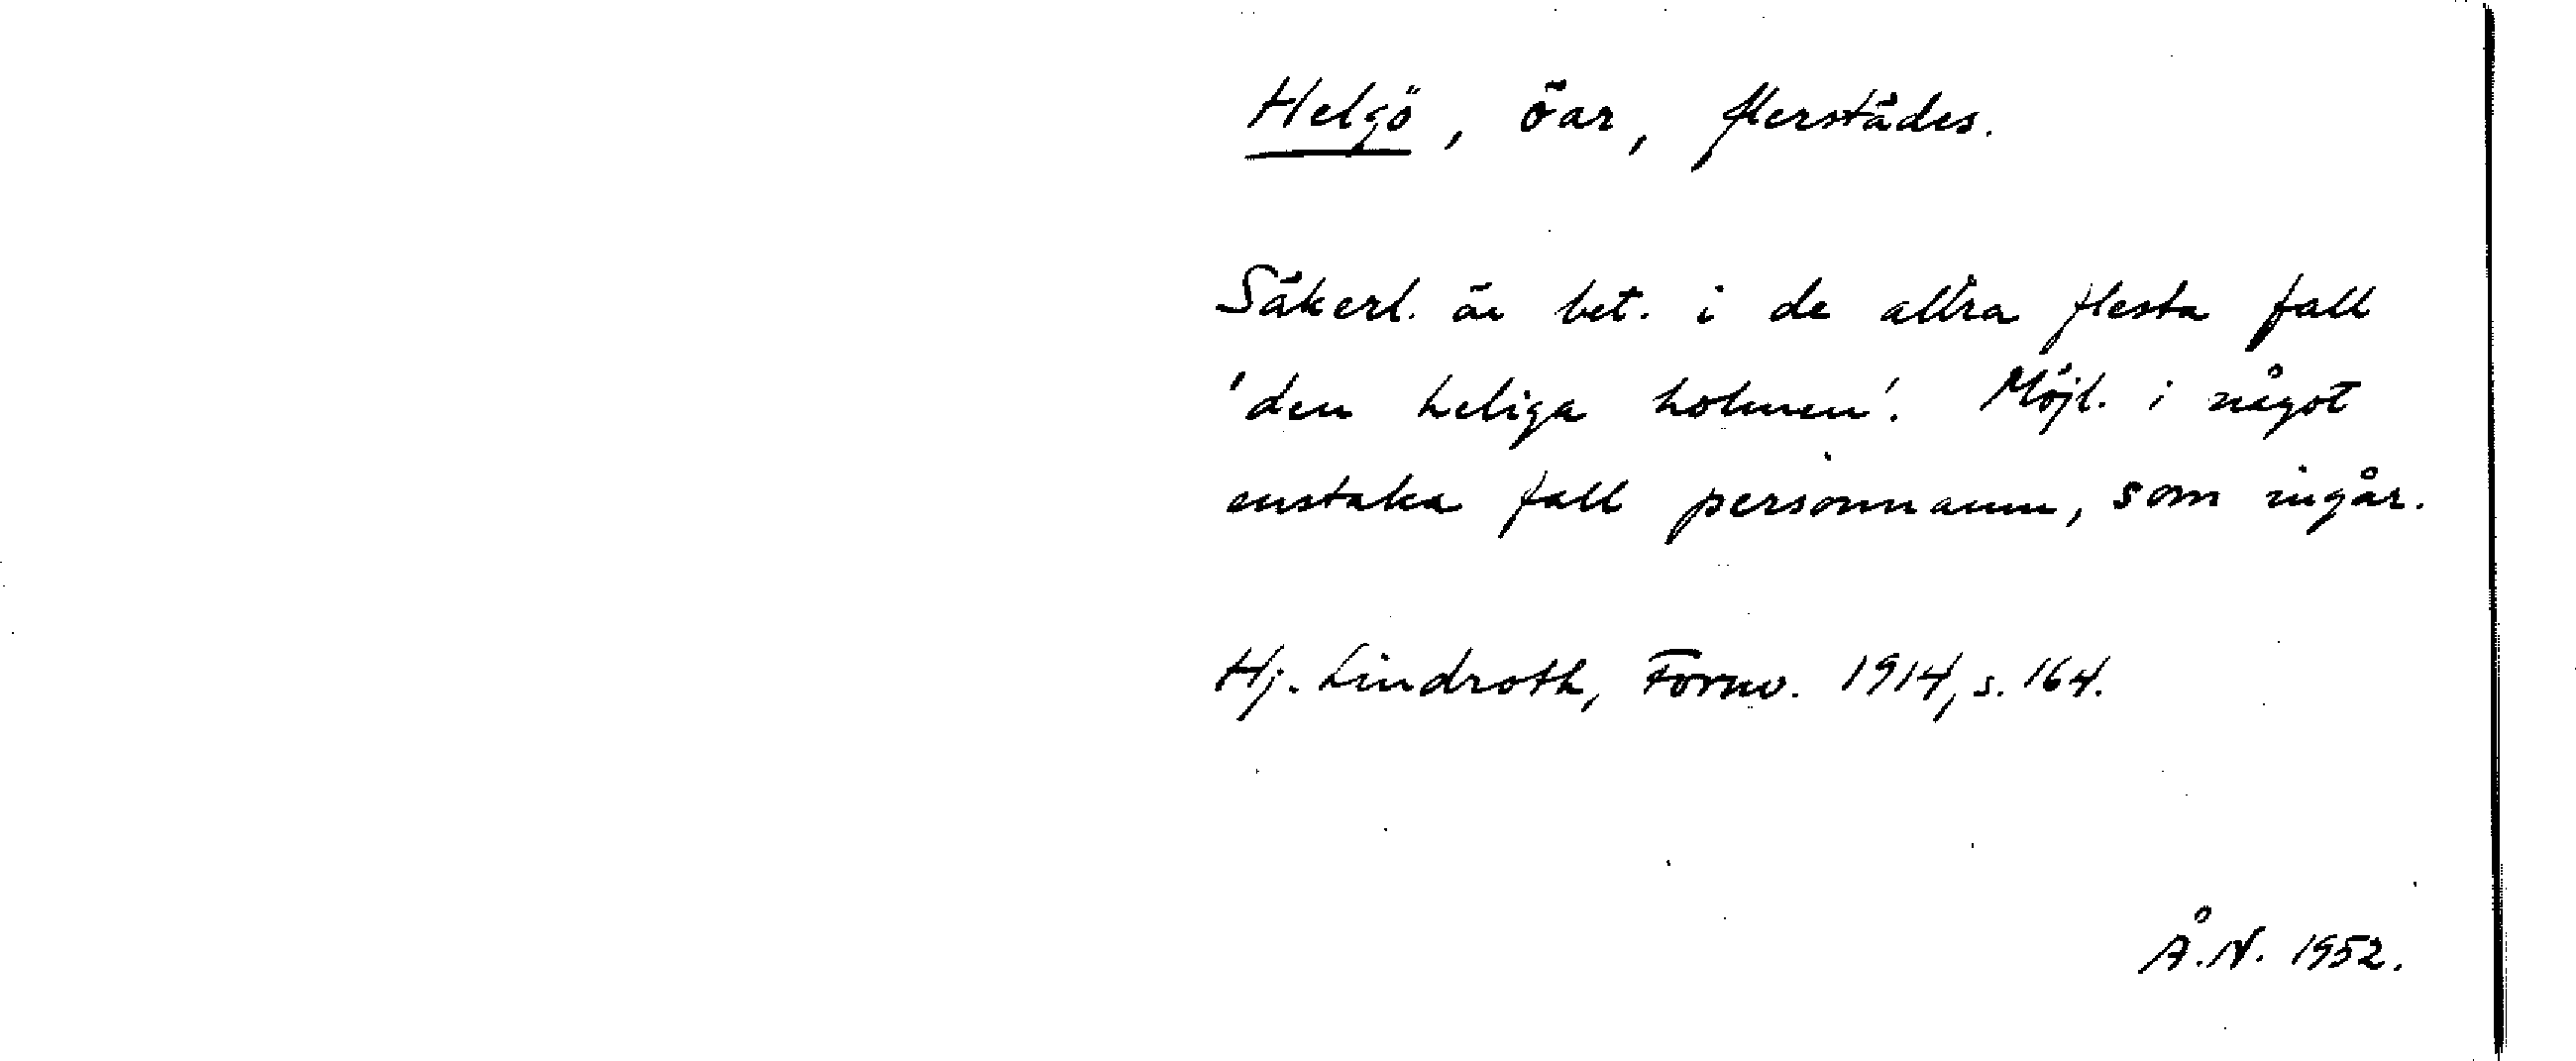 Helgö, öar, flerstädes.
Säkerl. är bet. i de allra flesta fall
'den heliga holmen'. Möjl. i något
enstaka fall personnamn, som ingår.
Hj. Lindroth, Fornv. 1914, s. 164.
Å.N. 1952.